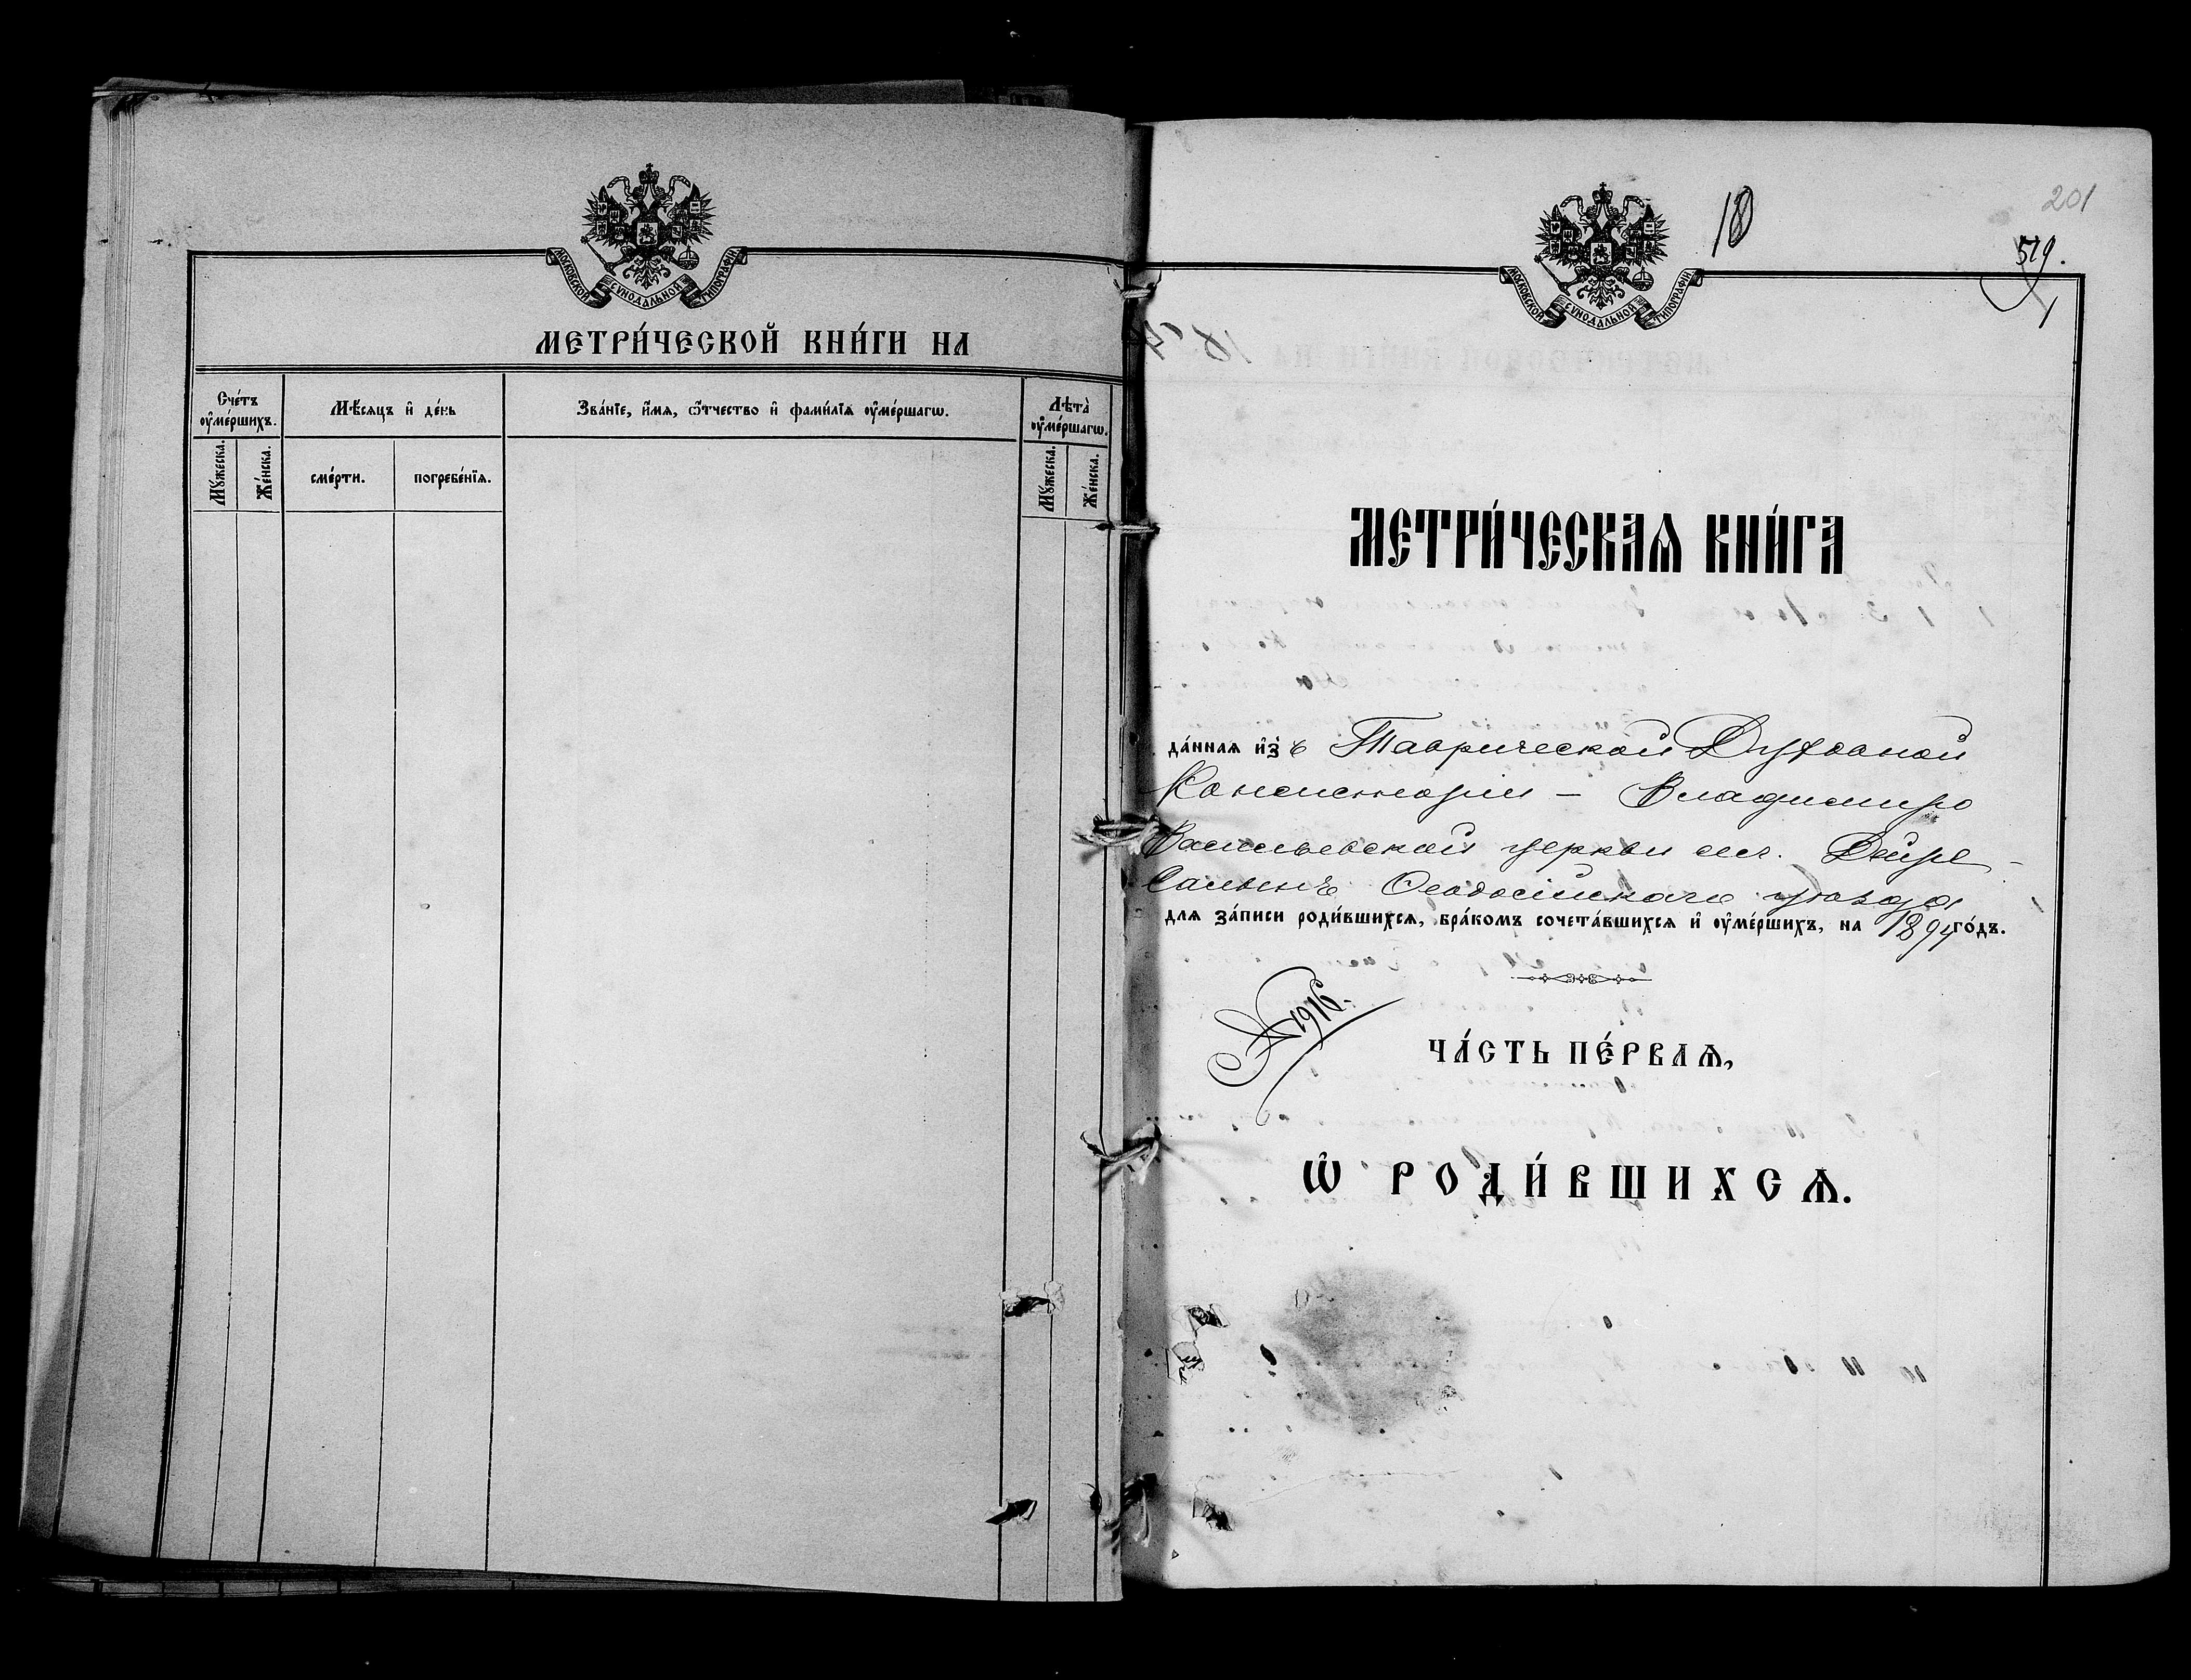 МОСКОВСКОЙ СѴНОДАЛЬНОЙ ТИПОГРАФІИ
МЕТРИ́ЧЕСКОЙ КНИ́ГИ НА
Сче́тъ ᲂу҆ме́ршихъ.
Мѣ́сяцъ и҆ де́нь
Зва́нїе, и҆́мѧ, ѻ҆́тчество и҆ фами́лїѧ ᲂу҆ме́ршагѡ.
Лѣта̀ ᲂу҆ме́ршагѡ.
Мꙋ́жеска.
Же́нска.
сме́рти.
погребе́нїѧ.
Мꙋ́жеска.
Же́нска.
201
18
519.
МОСКОВСКОЙ СѴНОДАЛЬНОЙ ТИПОГРАФІИ
МЕТРИ́ЧЕСКАѦ КНИ́ГА
да́ннаѧ и҆з̾ъ Таврической Духовной
Консисторіи – Владимиро
Васильевской церкви им. Дейре-
Салынъ Ѳеодосійскаго уѣзда
длѧ за́писи роди́вшихсѧ, бра́комъ сочета́вшихсѧ и҆ ᲂу҆ме́ршихъ, на 1894 го́дъ.
№ 1916.
ЧА́СТЬ ПЕ́РВАѦ,
Ѡ҆ РОДИ́ВШИХСѦ.